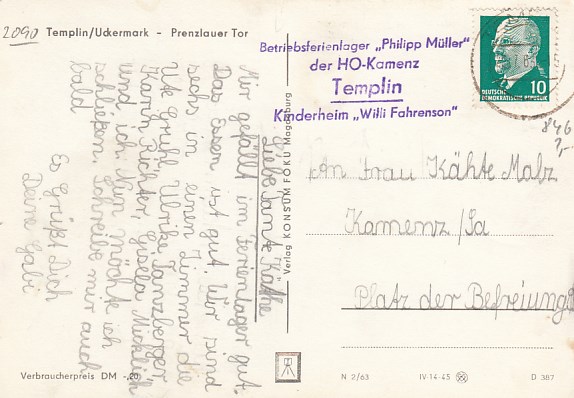 2090 Templin/Uckermark - Prenzlauer Tor
Liebe Tante Käthe
Mir gefällt im Ferienlager gut.
Das Essen ist gut. Wir sind
sechs in einen Zimmer die
Ute Gruhl, Ulrike Tanzberger,
Karin Richter, Gisela
und ich. Nun möchte ich
schließen. Schreibe mir auch
bald
Es grüßt Dich
Deine Gabi
Verbraucherpreis DM -,20
Verlag KONSUM FOKU Magdeburg
Betriebsferienlager „Philipp Müller"
der HO-Kamenz
Templin
Kinderheim „Willi Fahrenson"
10
DEUTSCHE
DEMOKRATISCHE REPUBLIK
846
?,-
An Frau Kähte Malz
Kamenz/Sa
Platz der Befreiung
N 2/63 IV-14-45 D 387